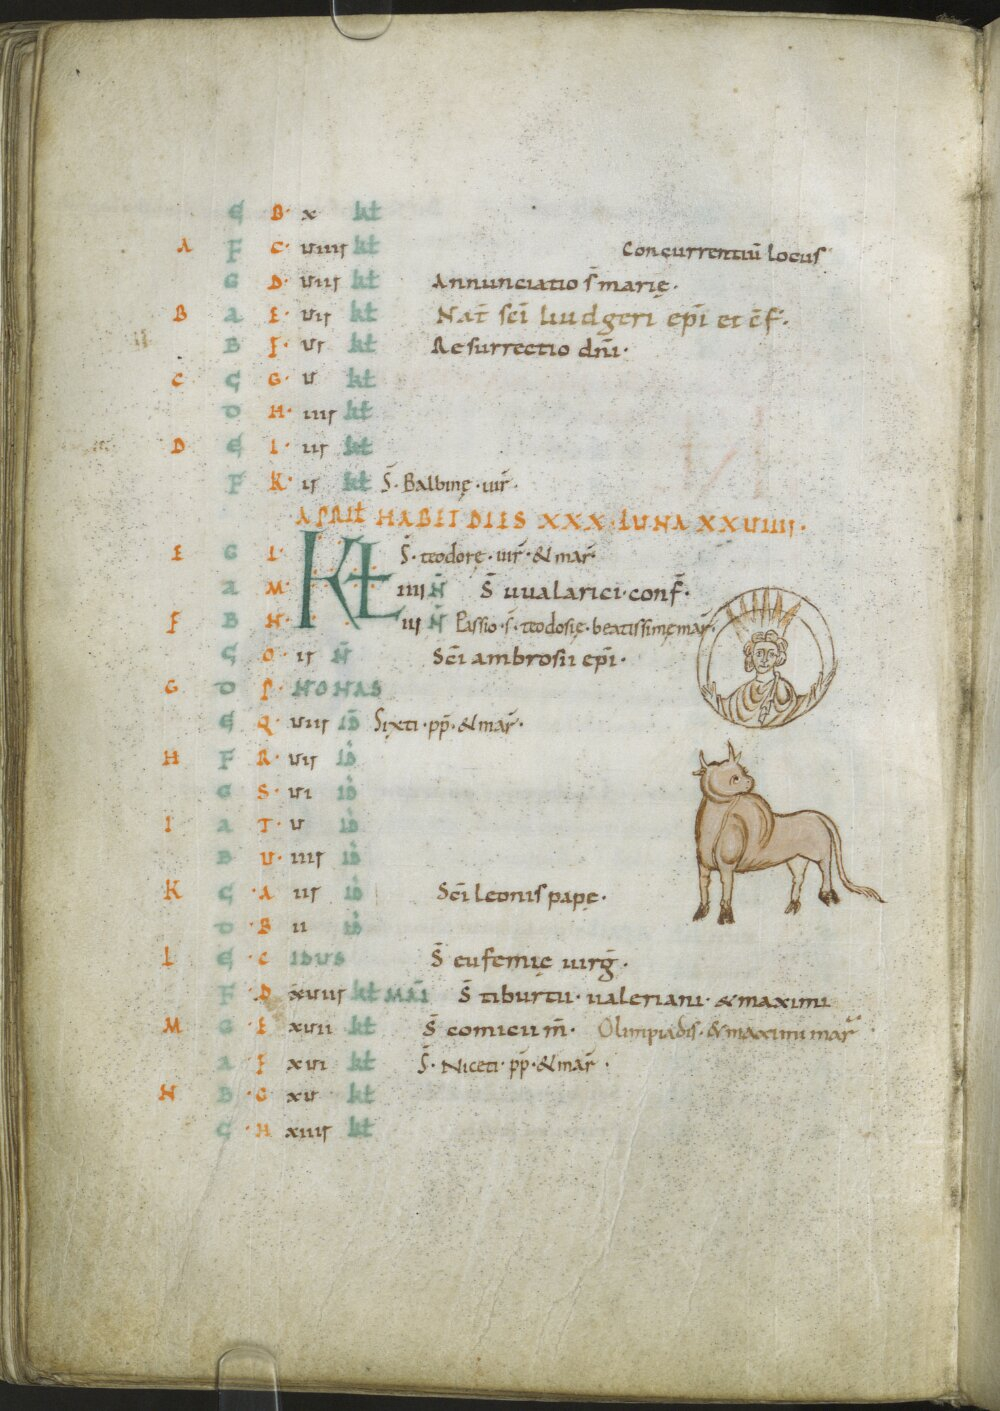 E B· x kł
A F C· uiiii kł Concurrentiū locus
G D· uiii kł Annunciatio s̄ marię·
B a E· uii kł Nat̄ sc̄i liudgeri ep̄i et c̄f·
B F· ui kł Resurrectio dn̄i·
C C G· u kł
D H· iiii kł
D E I· iii kł
F K· ii kł S̄· Balbinę· uir̄·
APRIł HABET DIES XXX· LUNA XXUIIII·
E G L· Kł S̄· teodorę· uir̄· & mar̄·
a M· iiii N̄ S̄ uualarici· conf̄·
F B N· iii N̄ Passio· s̄· teodosię· beatissimę mar̄·
C O· ii N̄ Sc̄i ambrosii ep̄i·
G D P· NONAS
E Q· uiii iD̄ Sixti· pp̄· & mar̄·
H F R· uii iD̄
G S· ui iD̄
I a T· u iD̄
B U· iiii iD̄
K C ·A iii iD̄ Sc̄i leonis papę·
D ·B ii iD̄
L E ·C IDUS S̄ eufemię uirḡ·
F ·D xuiii kł MAI S̄ tiburtii· ualeriani· & maximi
M G ·E xuii kł Olimpiadis· & maximi mar̄
a F xui kł S̄· Niceti· pp̄· & mar̄·
N B ·G xu kł
C ·H xiiii kł